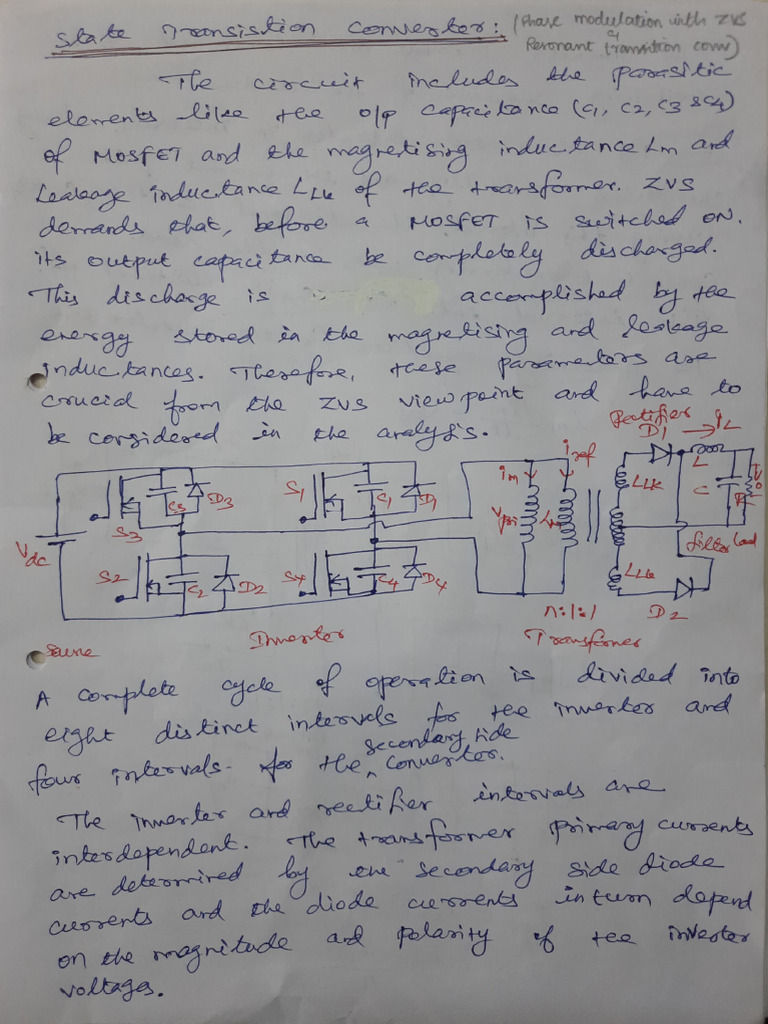 State Transistion Converter: (Phase modulation with ZVS
Resonant transition conv)
The circuit includes the parasitic
elements like the o/p capacitance (C1, C2, C3 & C4)
of MOSFET and the magnetising inductance Lm and
Leakage inductance LLk of the transformer. ZVS
demands that, before a MOSFET is switched ON,
its output capacitance be completely discharged.
This discharge is accomplished by the
energy stored in the magnetising and leakage
inductances. Therefore, these parameters are
crucial from the ZVS viewpoint and have to
be considered in the analysis.
Rectifier
D1 iL
S3 C3 D3 S1 C1 D1 im iref Vpri Lm LLk L C R Vo
Vdc
S2 C2 D2 S4 C4 D4 LLk filter Load
n:1:1 D2
Inverter Transformer
Same
A complete cycle of operation is divided into
eight distinct intervals for the inverter and
four intervals for the secondary side converter.
The inverter and rectifier intervals are
interdependent. The transformer primary currents
are determined by the secondary side diode
currents and the diode currents in turn depend
on the magnitude and polarity of the inverter
voltages.